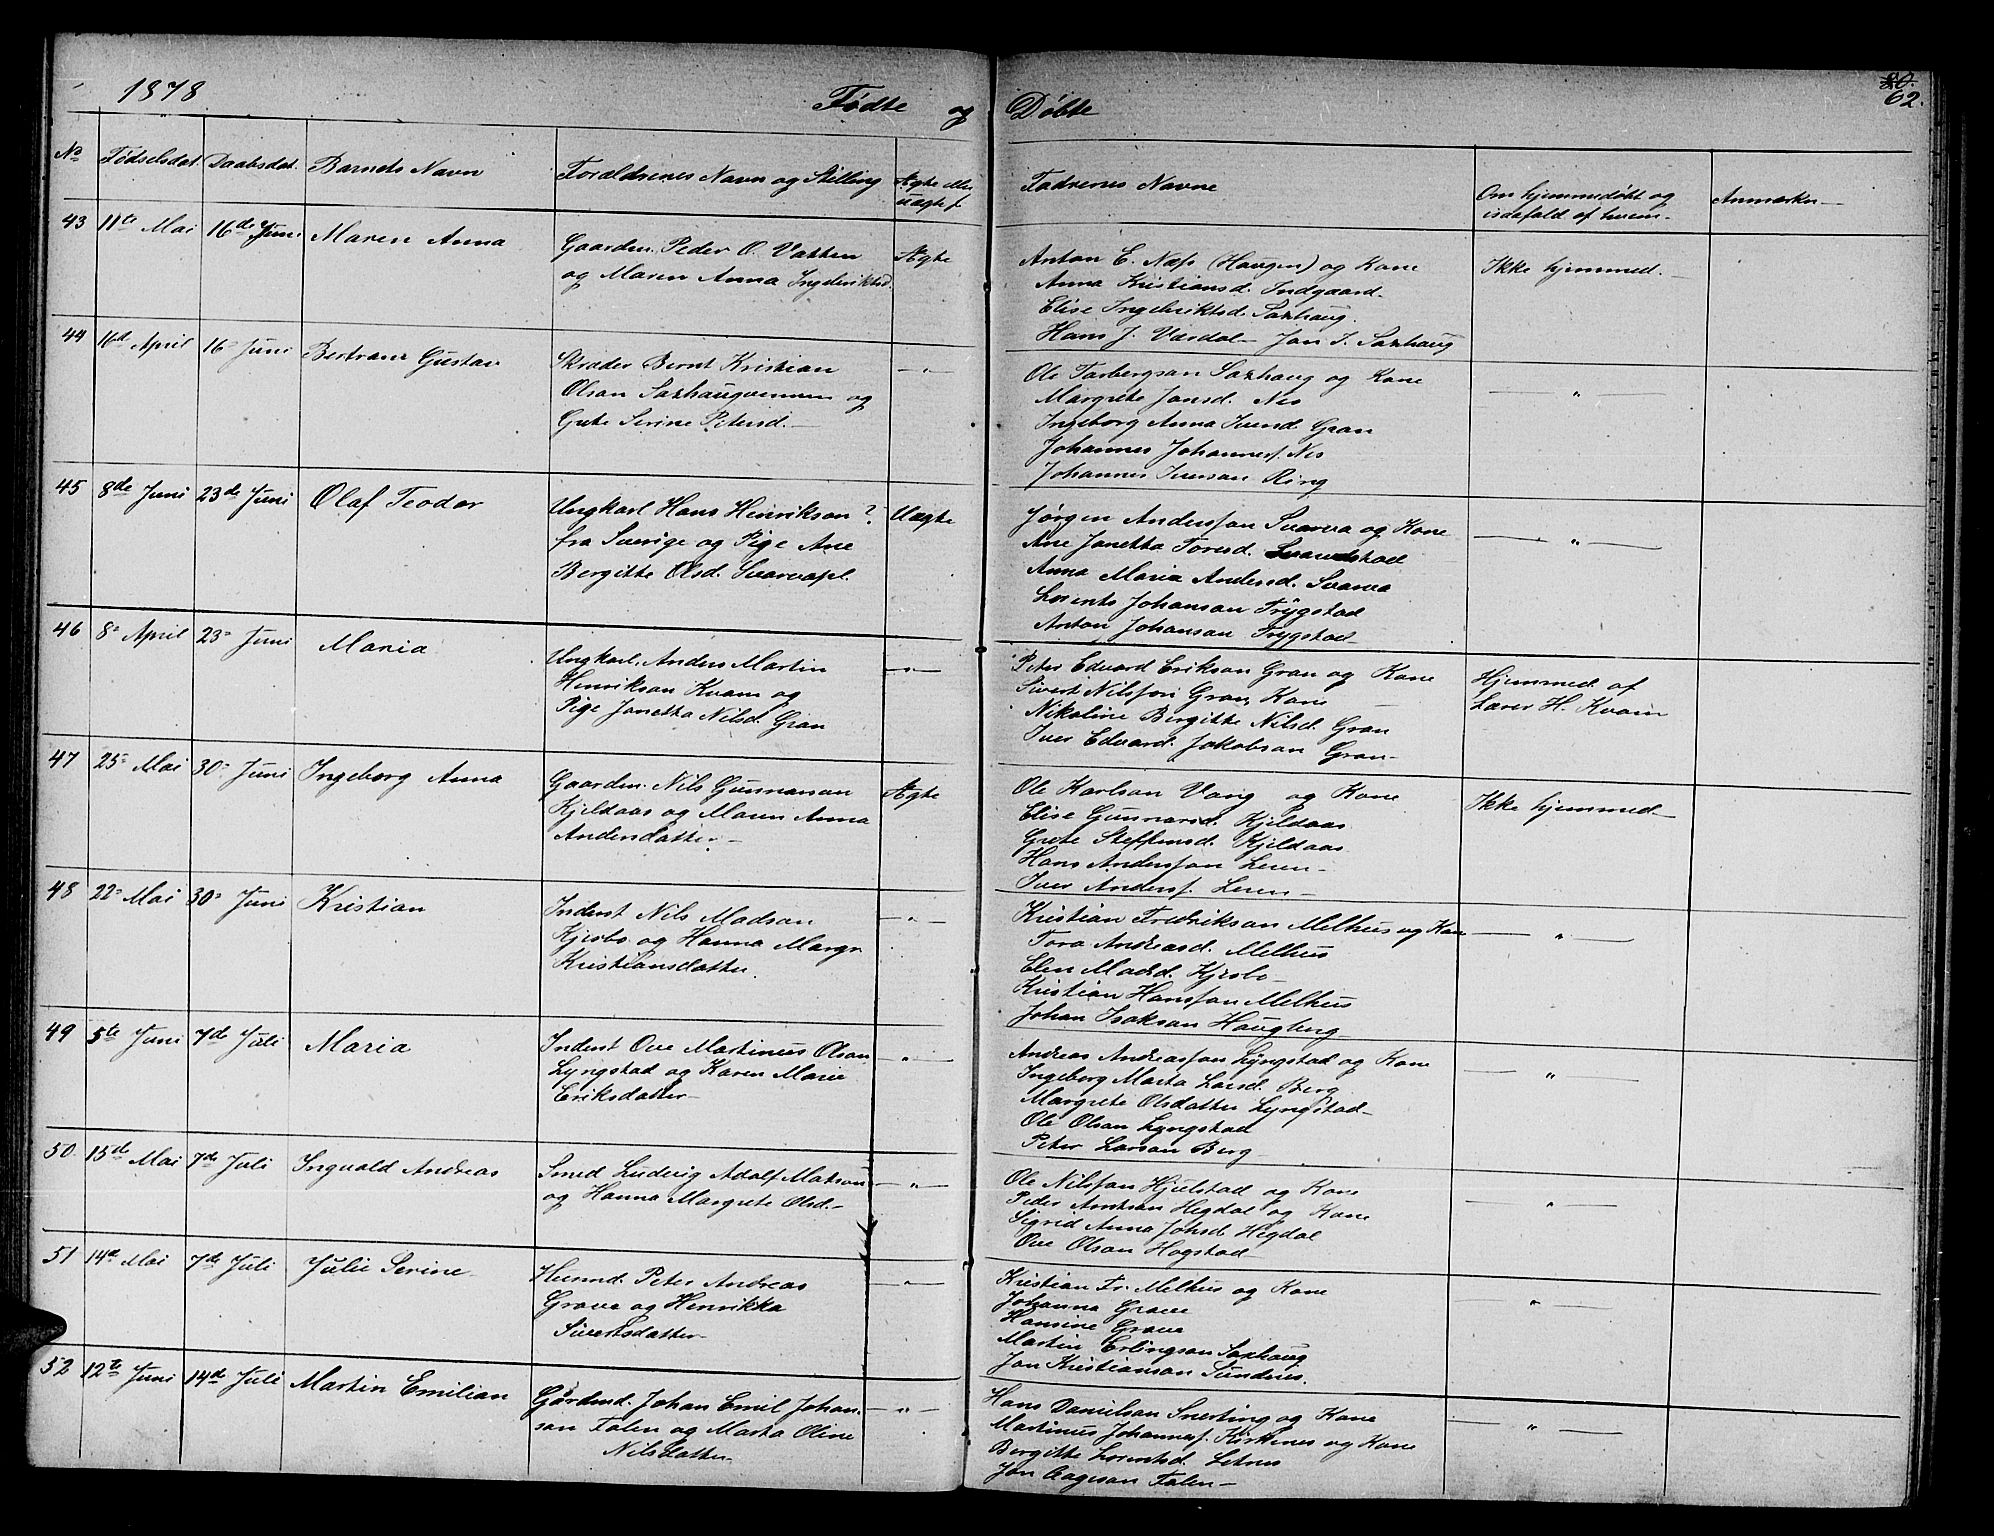 1878 Fødte og Døbte 80. 62.
No Fødselsdat. Daabsdat. Barnets Navn Forældrenes Navn og Stilling Ægte eller uægte f. Fadrenes Navne Om hjemmedøbt og isdafald af hvem. Anmærkn
43 11te Mai 16de Juni Maren Anna
Gaardm. Peder O. Vatten
og Maren Anna Ingebriktsd.
Ægte
Anton E. Næss (Haugen) og Kone
Anna Kristiansd. Indgaard
Elise Ingebriktsd. Saxhaug.
Hans J. Værdal Jon S. Saxhaug
Ikke hjemmed.
44 16d April 16 Juni Bertram Gustav
Skræder Bernt Kristian
Olsen Saxhaugvennen og
Gute Serine Petersd.
— " —
Ole Torbergsan Saxhaug og Kone
Margrete Jonsd. Nes
Ingeborg Anna Iversd Gran
Johannes Johannesf. Nes
Johannes Iversan Ring
— " —
45 8de Juni 23de Juni Olaf Teodor
Ungkarl Hans Henriksen ?
fra Sverige og Pige Ane
Bergitte Olsd. Svarvapl.
Uægte
Jørgen Andersson Svarva og Kone
Ane Janetta Toresd. Svarvestad
Anna Maria Andersd. Svarva
Lorents Johansan Trygstad
Anton Johansan Trygstad
— " —
46 8. April 23 Juni Maria
Ungkarl. Anders Martin
Henriksan Kvam og
Pige Janetta Nilsd. Gran
— " —
Peter Edvard Eriksan Gran og Kone
Sivert Nilsson Gran, Kone
Nikoline Bergitte Nilsd. Gran
Iver Edvard Jakobsan Gran
Hjemmed. af
Lærer H. Kvam
47 25 Mai 30 Juni Ingeborg Anna
Gaardm. Nils Gunnarsan
Kjeldaas og Maren Anna
Andersdatter
Ægte
Ole Karlsan Vang og Kone
Elise Gunnarsd. Kjeldaas
Grete Steffensd. Kjeldaas
Hans Andersson Leren
Iver Anderss. Leren
Ikke hjemmed
48 22 Mai 30 Juni Kristian
Inderst Nils Madsan
Kjesbo og Hanna Margr.
Kristiansdatter.
— " —
Kristian Fredriksan Melhus og Kone
Tora Andreasd. Melhus
Elen Madsd. Kjesbo
Kristian Hansson Melhus
Johan Isaksan Haugberg
— " —
49 5te Juni 7de Juli Maria
Inderst Ove Martinus Olsan
Lyngstad og Karen Marie
Eriksdatter
— " —
Andreas Andreasson Lyngstad og Kone
Ingeborg Marta Larsd. Berg
Margrete Olsdatter Lyngstad
Ole Olsan Lyngstad
Peter Larsan Berg
— " —
50 15de Mai 7de Juli Ingvald Andreas
Smed Ludvig Adolf Matson
og Hanna Margrete Olsd.
— " —
Ole Nilsson Hjelstad og Kone
Peder Arntsan Hegdal og Kone
Sigrid Anna Johsd Hegdal
Ove Olsan Hogstad
— " —
51 14de Mai 7de Juli Julie Serine
Husmd. Peter Andreas
Grava og Henrikka
Sivertsdatter
— " —
Kristian Fr. Melhus og Kone
Johanna Grave
Hansine Grava
Martin Erlingsan Saxhaug
Jon Kristiansan Sundnes.
— " —
52 12te Juni 14de Juli Martin Emilian
Gårdmd. Johan Emil Johan-
san Falen og Marta Oline
Nilsdatter
— " —
Hans Danielsan Snerting og Kone
Martinus Johannesf. Kirkenes og Kone
Bergitte Lorentsd. Letnes
Jon Aagesan Falen
— " —